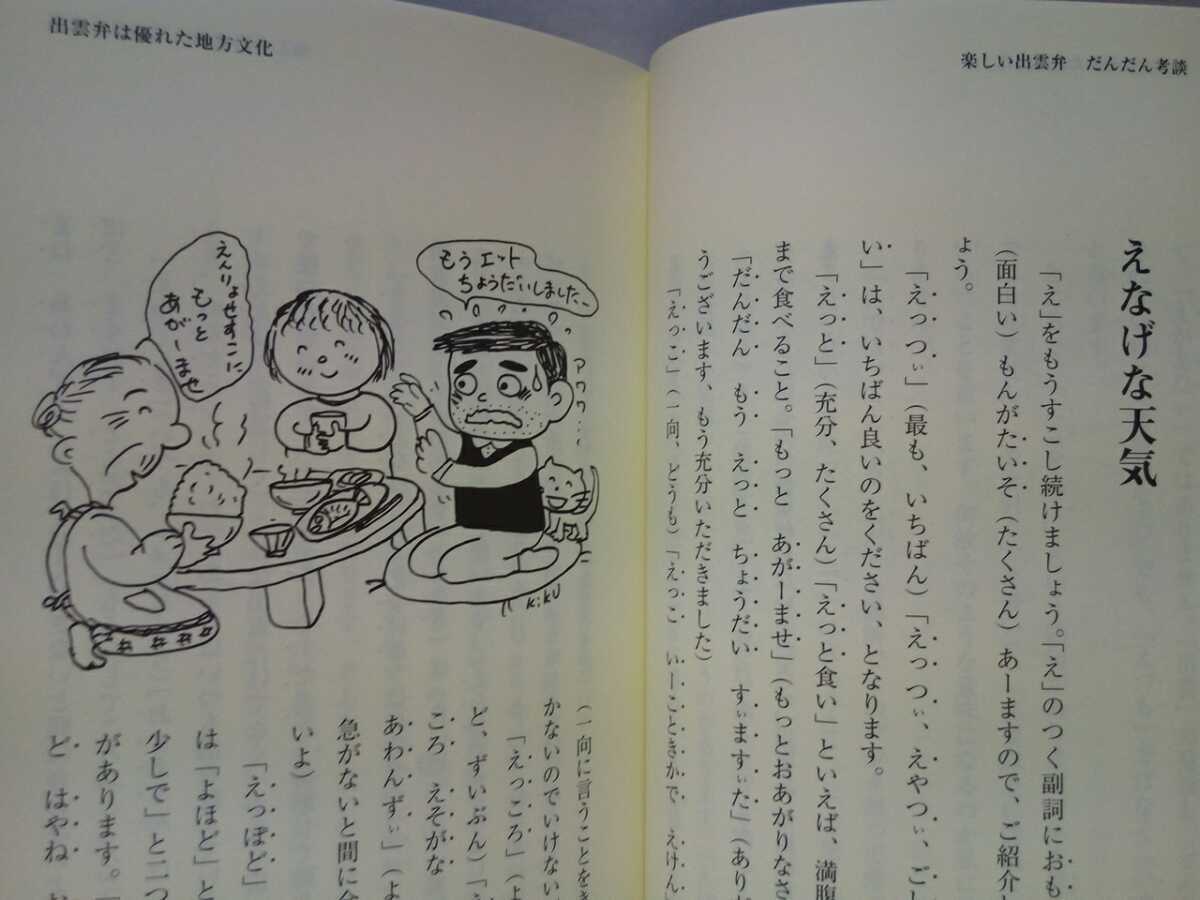 楽しい出雲弁 だんだん考談
えなげな天気
「え」をもうすこし続けましょう。「え」のつく副詞におも
(面白い)もんがたいそ(たくさん)あーますので、ご紹介し
ょう。
「えっつぃ」(最も、いちばん)「えっつぃ、えやつぃ、ごし
い」は、いちばん良いのをください、となります。
「えっと」(充分、たくさん)「えっと食い」といえば、満腹
まで食べること。「もっと あがーませ」(もっとおあがりなさ
「だんだん もう えっと ちょうだい すぃますぃた」(ありが
うございます、もう充分いただきました)
「えっこ」(一向、どうも)「えっこ いーことときかで えけん
出雲弁は優れた地方文化
えんりょせすこに
もっと
あがーませ
もうエット
ちょうだいしました~
アワワ・・・
KiKU
(一向に言うことをき
かないのでいけない
「えっころ」(よ
ど、ずいぶん)「え
ころ えそがな
あわんずぃ」(よ
急がないと間に合
いよ)
「えっぽど」
は「よほど」と
少しで」と二つ
があります。「
ど はやね お